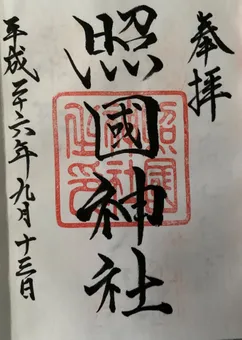 奉拝
照國神社
平成二十六年九月十三日